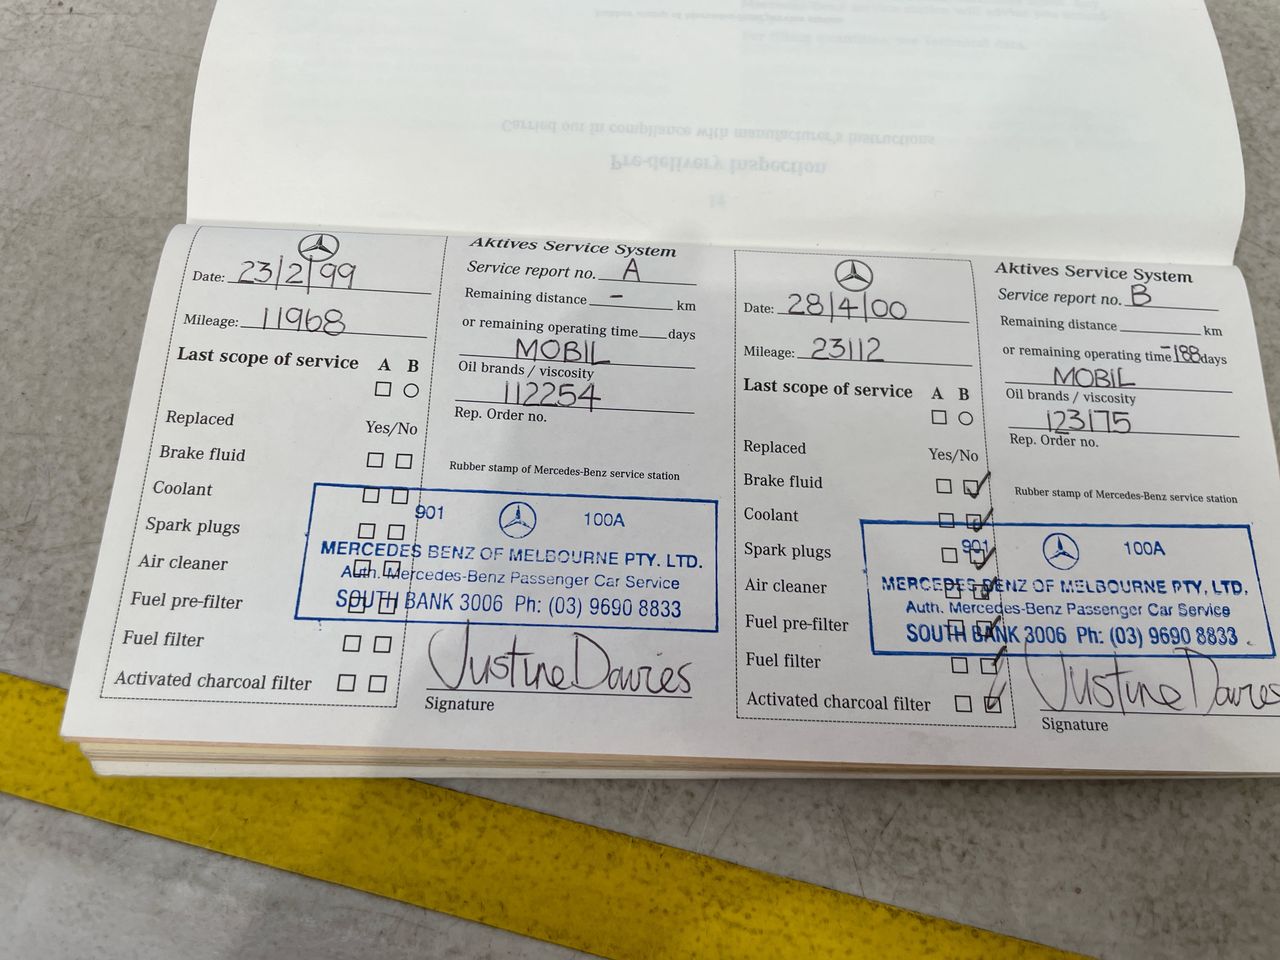 Carried out in compliance with manufacturer's instructions
Pre-delivery Inspection
Date: 23/2/99
Mileage: 11968
Last scope of service A B
Replaced Yes/No
Brake fluid
Coolant
Spark plugs
Air cleaner
Fuel pre-filter
Fuel filter
Activated charcoal filter
Aktives Service System
Service report no. A
Remaining distance - km
or remaining operating time days
MOBIL
Oil brands / viscosity
112254
Rep. Order no.
Rubber stamp of Mercedes-Benz service station
901 100A
MERCEDES BENZ OF MELBOURNE PTY. LTD.
Auth. Mercedes-Benz Passenger Car Service
SOUTH BANK 3006 Ph: (03) 9690 8833
Justine Davies
Signature
Date: 28/4/00
Mileage: 23112
Last scope of service A B
Replaced Yes/No
Brake fluid
Coolant
Spark plugs
Air cleaner
Fuel pre-filter
Fuel filter
Activated charcoal filter
Aktives Service System
Service report no. B
Remaining distance km
or remaining operating time -188 days
MOBIL
Oil brands / viscosity
123175
Rep. Order no.
Rubber stamp of Mercedes-Benz service station
901 100A
MERCEDES BENZ OF MELBOURNE PTY. LTD.
Auth. Mercedes-Benz Passenger Car Service
SOUTH BANK 3006 Ph: (03) 9690 8833
Justine Davies
Signature